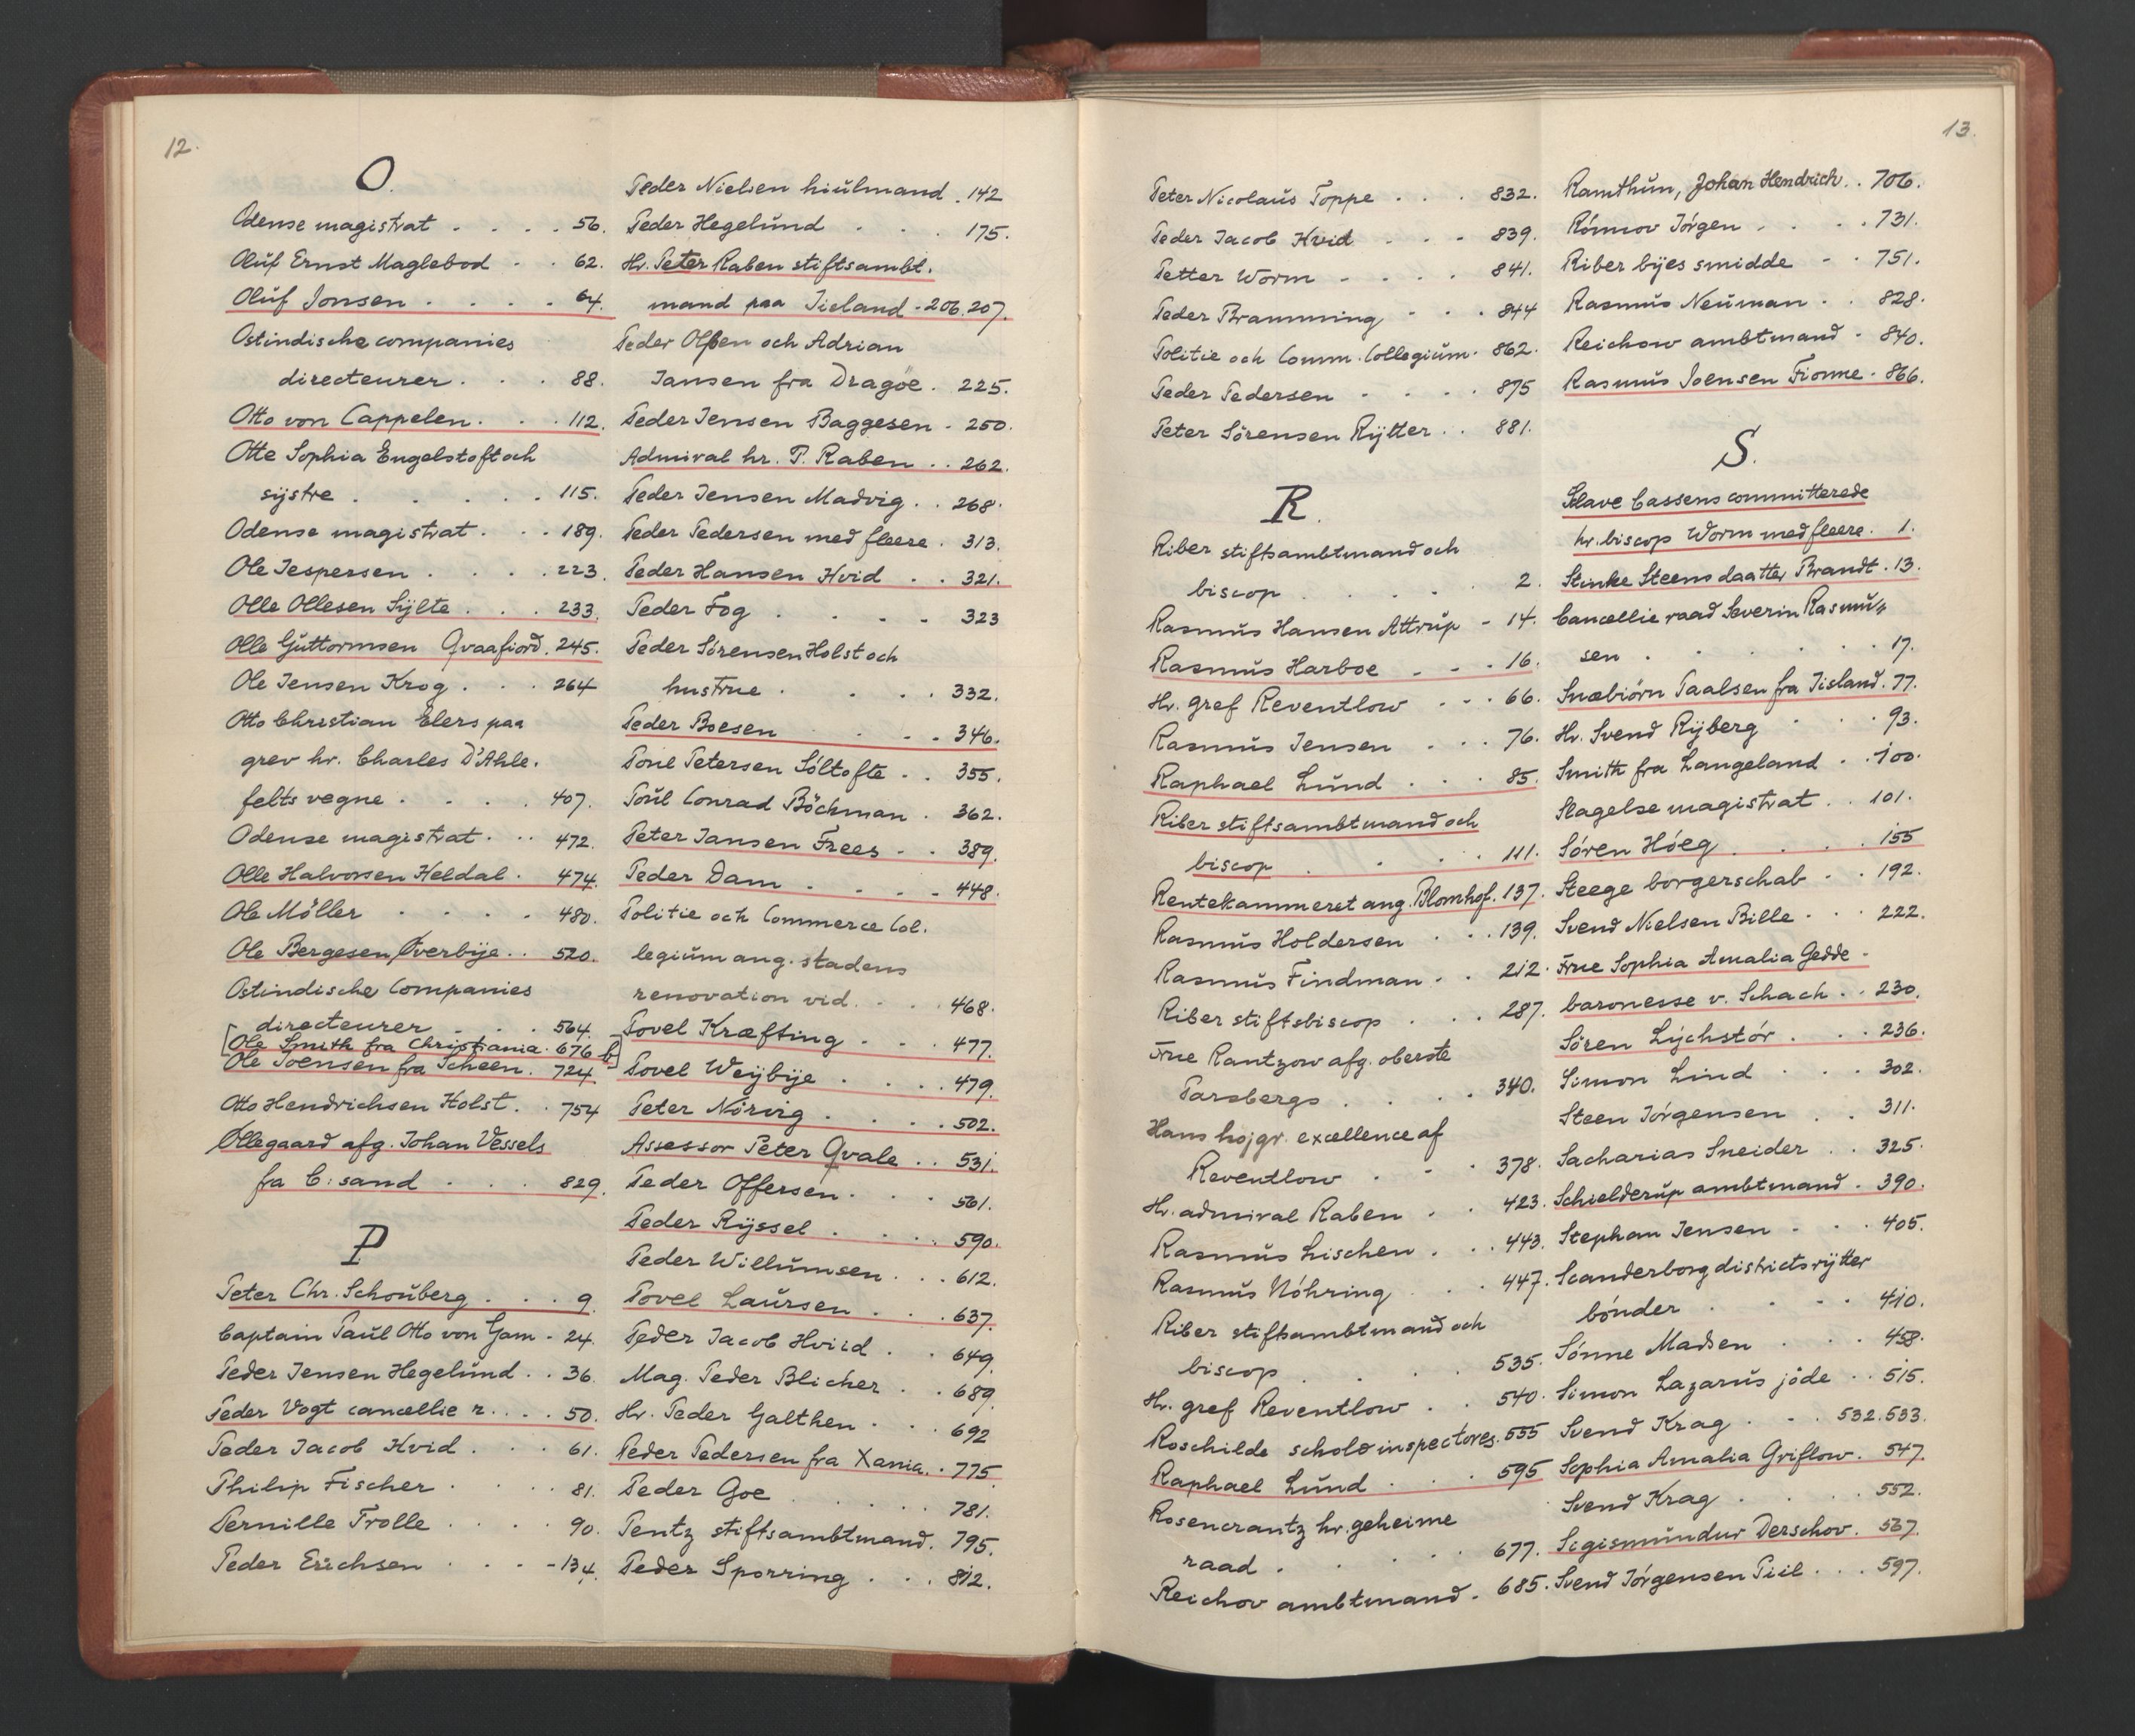 12.
O.
Odense magistrat . . . . 56.
Oluf Ernst Maglebod . . 62.
Oluf Jonsen . . . . 64.
Ostindische companies
directeurer . . . 88.
Otto von Cappelen . . . 112.
Otte Sophia Engelstoft och
sÿstre . . . . . 115.
Odense magistrat . . . 189.
Ole Jespersen . . . . 223.
Olle Ollesen Sÿlte . . . 233.
Olle Guttormsen Qvaafiord . 245.
Ole Jensen Krog . . . 264
Otto Christian Elers paa
grev hr. Charles D'Ahle.
felts vegne . . . . 407.
Odense magistrat . . . 472.
Olle Halvorsen Heldal . 474.
Ole Möller . . . . 480.
Ole Bergesen Øverbÿe . . 520.
Ostindische Companies
directeurer . . . 564.
[Ole Smith fra Christiania . 676 b]
Ole Joensen fra Scheen . 724.
Otto Hendrichsen Holst . . 754
Øllegaard afg. Johan Vessels
fra C: sand . . . 829.
P
Peter Chr. Schouberg . . . 9.
Captain Paul Otto von Gam - 24.
Peder Jensen Hegelund . . 36.
Peder Vogt cancellie r. . . . 50.
Peder Jacob Hvid . . . 61.
Philip Fischer . . . . 81.
Pernille Trolle . . . . 90.
Peder Erichsen . . . - 134.
Peder Nielsen hiulmand . 142
Peder Hegelund . . . 175.
Hr. Peter Raben stiftsambt.
mand paa Iisland - 206.207.
Peder Olsen och Adrian
Jansen fra Dragöe . 225.
Peder Jensen Baggesen - 250.
Admiral hr. P. Raben . . 262.
Peder Jensen Madvig . . 268.
Peder Pedersen med fleere . 313.
Peder Hansen Hvid . . 321.
Peder Fog . . . . 323
Peder Sörensen Holst och
hustrue . . . . 332.
Peder Boesen . . . 346.
Poul Petersen Söltofte . . 355.
Poul Conrad Böckman . 362.
Peter Jansen Frees . . 389.
Peder Dam . . . . 448.
Politie och Commerce Col.
legium ang. stadens
renovation vid. . . . 468.
Povel Kræfting . . . 477.
Povel Weÿbÿe . . . . 479.
Peter Nörvig . . . . 502.
Assessor Peter Qvale . . 531.
Peder Offersen . . . 561.
Peder Rÿssel . . . . 590.
Peder Willumsen . . . 612.
Povel Laursen . . . 637.
Peder Jacob Hviid . . 649.
Mag. Peder Blicher . . 689.
Hr. Peder Galthen . . . 692
Peder Pedersen fra Xania. . 775
Peder Goe . . . . . 781.
Pentz stiftsambtmand . 795.
Peder Sporring . . . 812.
13.
Peter Nicolaus Toppe . . . 832.
Peder Jacob Hvid . . . 839.
Petter Worm . . . . 841.
Peder Bramming . . . 844
Politie och Comm. Collegium . 862.
Peder Pedersen . . . . 875
Peter Sörensen Rÿtter . . 881.
R.
Riber stiftsambtmand och
biscop . . . . . 2.
Rasmus Hansen Attrup - 14.
Rasmus Harboe . . . 16.
Hr. gref Reventlow . . . 66.
Rasmus Jensen . . . 76.
Raphael Lund . . . 85.
Riber stiftsambtmand och
biscop . . . . 111.
Rentekammeret ang. Blomhof. 137.
Rasmus Holdersen . . . 139.
Rasmus Findman . . 212.
Riber stiftsbiscop . . . 287.
Frue Rantzow afg. oberste
Parsbergs . . . . 340.
Hans höjgr. excellence af
Reventlow . . . 378.
Hr. admiral Raben . . 423.
Rasmus Lischen . . . 443.
Rasmus Nöhring . . . 447.
Riber stiftsambtmand och
biscop . . . . 535.
Hr. gref Reventlow . . 540.
Roschilde schole inspectores. 555
Raphael Lund . . . 595
Rosencrantz hr. geheime
raad . . . . . 677.
Reichov ambtmand . 685.
Ramthun, Johan Hendrich . . 706.
Römmov Jörgen . . . . 731.
Riber bÿes smidde . . 751.
Rasmus Neuman . . 828.
Reichow ambtmand . 840.
Rasmus Joensen Fionne . 866.
S.
Slave Cassens committerede
hr. biscop Worm med fleere . 1.
Stinke Steens daatter Brandt . 13.
Cancellie raad Severin Rasmu„
sen . . . . . . 17.
Snæbiörn Paalsen fra Iisland . 77.
Hr. Svend Rÿberg . . . 93.
Smith fra Langeland . . 100.
Slagelse magistrat . . 101.
Sören Höeg . . . . 155
Steege borgerschab . . 192.
Svend Nielsen Bille . . . 222.
Frue Sophia Amalia Gedde -
baronesse v. Schach . . 230.
Sören Lÿchstör . . . 236.
Simon Lind . . . 302.
Steen Jörgensen . . 311.
Sacharias Sneider . . 325.
Schielderup ambtmand . 390.
Stephan Jensen . . . 405.
Scanderborg districts rÿtter
bönder . . . . 410.
Sönne Madsen . . . 458.
Simon Lazarus jöde . . 515.
Svend Krag . . . 532.533.
Sophia Amalia Griflow . 547.
Svend Krag . . . . 552.
Sigismundur Derschov . 567.
Svend Jörgensen Piil . . . 597.